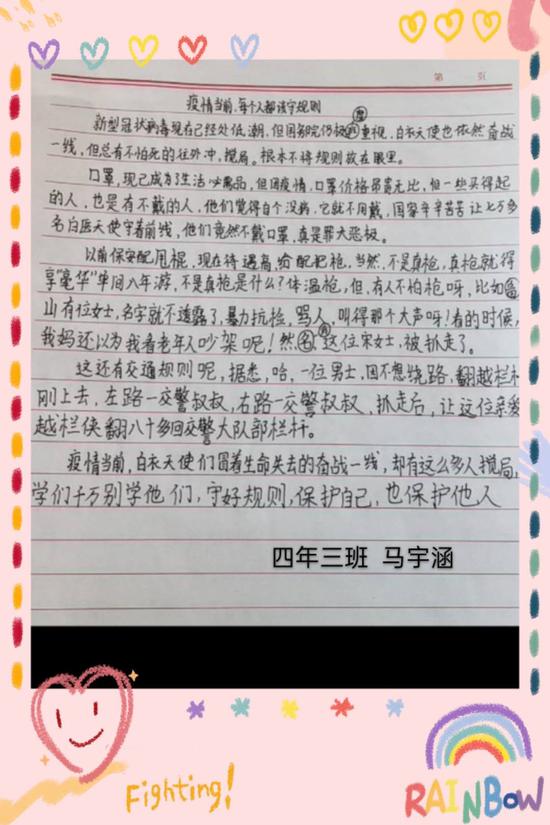 第 页
疫情当前，每个人都该守规则
新型冠状病毒现在已经处低潮，但国务院仍极度重视，白衣天使也依然奋战
一线，但总有不怕死的往外冲，搅局。根本不将规则放在眼里。
口罩，现已成为了生活必需品，但因疫情，口罩价格昂贵无比，但一些买得起
的人，也是有不戴的人，他们觉得自个没病，它就不用戴，国家辛辛苦苦让七万多
名白医天使守着前线，他们竟然不戴口罩，真是罪大恶极。
以前保安配甩棍，现在待遇高，给配把枪，当然，不是真枪，真枪就得
享"豪华"单间八年游，不是真枪是什么？体温枪，但，有人不怕枪呀，比如
山有位女士，名字就不透露了，暴力抗检，骂人，叫得那个大声呀！看的时候，
我妈还以为我看老年人吵架呢！然后，这位宋女士，被抓走了。
这还有交通规则呢，据悉，哈，一位男士，因不想绕路，翻越栏杆
刚上去，左路一交警叔叔，右路一交警叔叔，抓走后，让这位亲爱
越栏侠翻八十多回交警大队部栏杆。
疫情当前，白衣天使们冒着生命失去的奋战一线，却有这么多人搅局，
学们千万别学他们，守好规则，保护自己，也保护他人
四年三班 马宇涵
Fighting!
RAINBOW